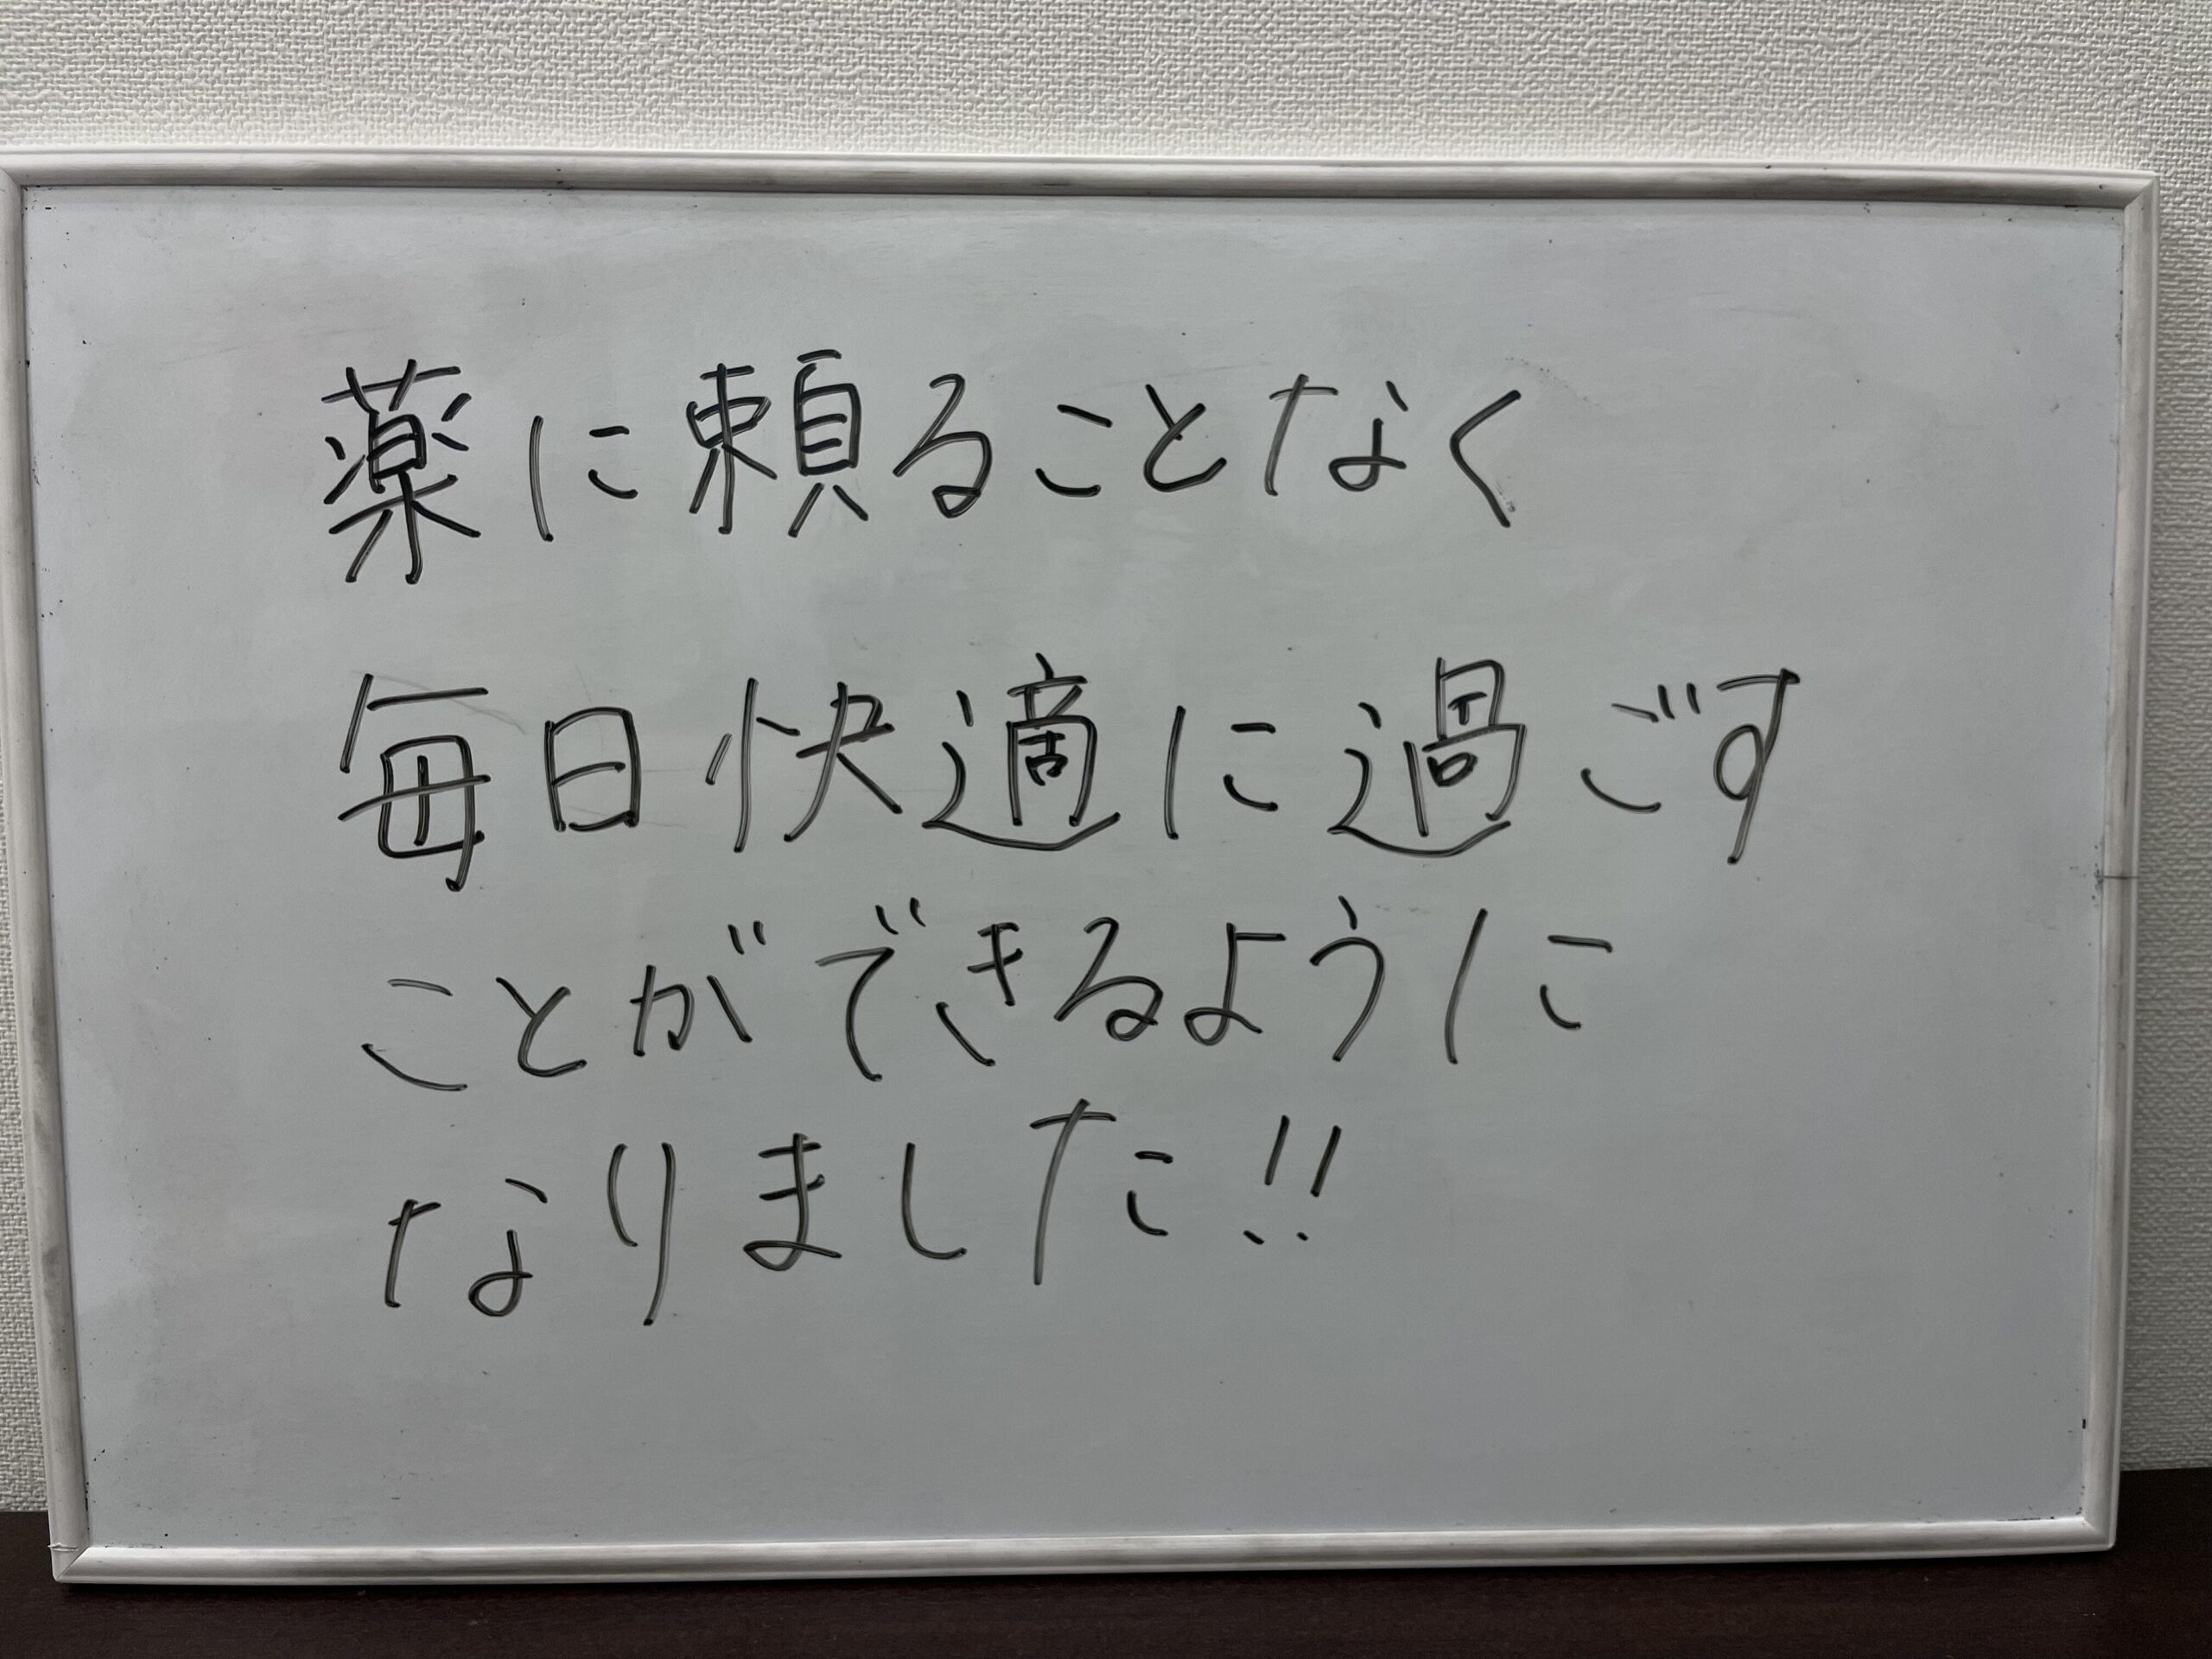 薬に頼ることなく
毎日快適に過ごす
ことができるように
なりました!!